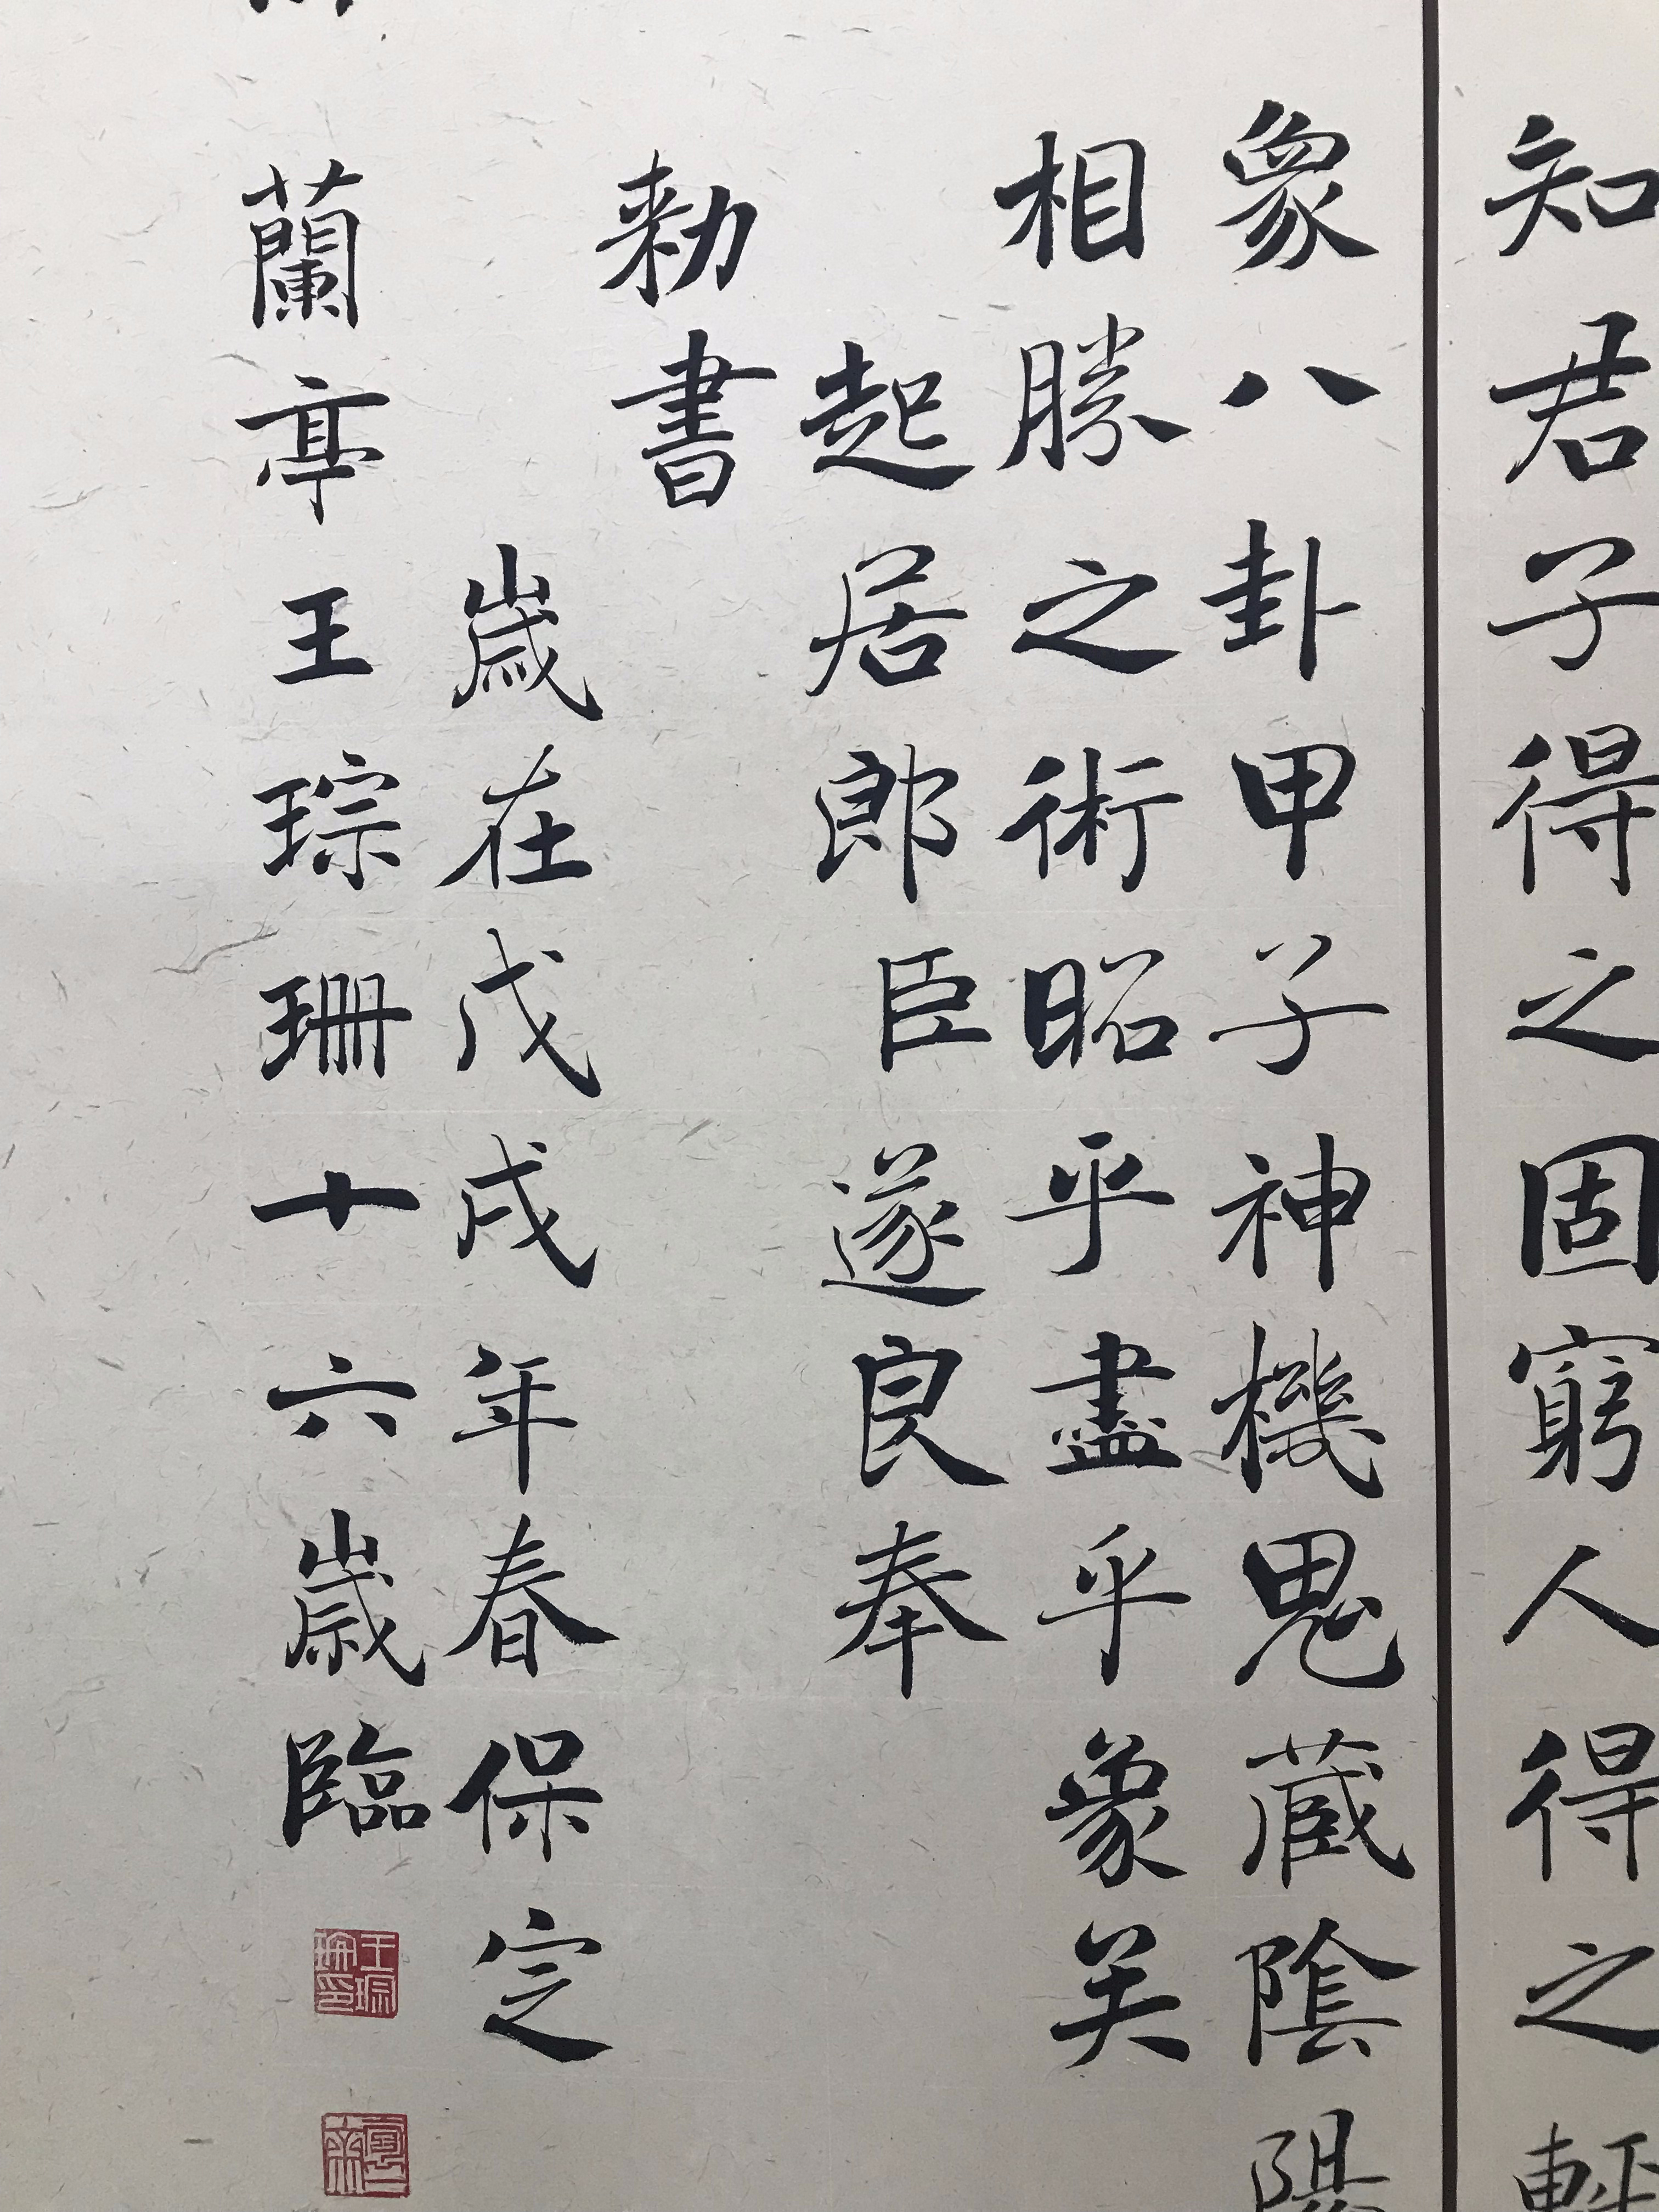 知君子得之固窮人得之輕
象八卦甲子神機鬼藏陰陽
相勝之術昭昭乎盡乎象矣
起居郎臣遂良奉
勑書
歲在戊戌年春保定
蘭亭王琮珊十六歲臨